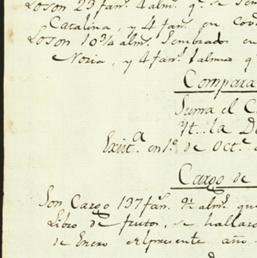 Loson 23 fan.s 4 alm.s q.e se Sem
Catalina, y 4 fan.s en Cov
Loson 10¾ alm.s Sembrado en
Noria, y 4 fan.s 1 almud q
Compara
Suma el C
Yt. la D
Exit.a en 1.º de Oct.e
Cargo de
Son Cargo 137 fan.s alm.s que
Libro de frutos, se hallaro
de Enero el presente año